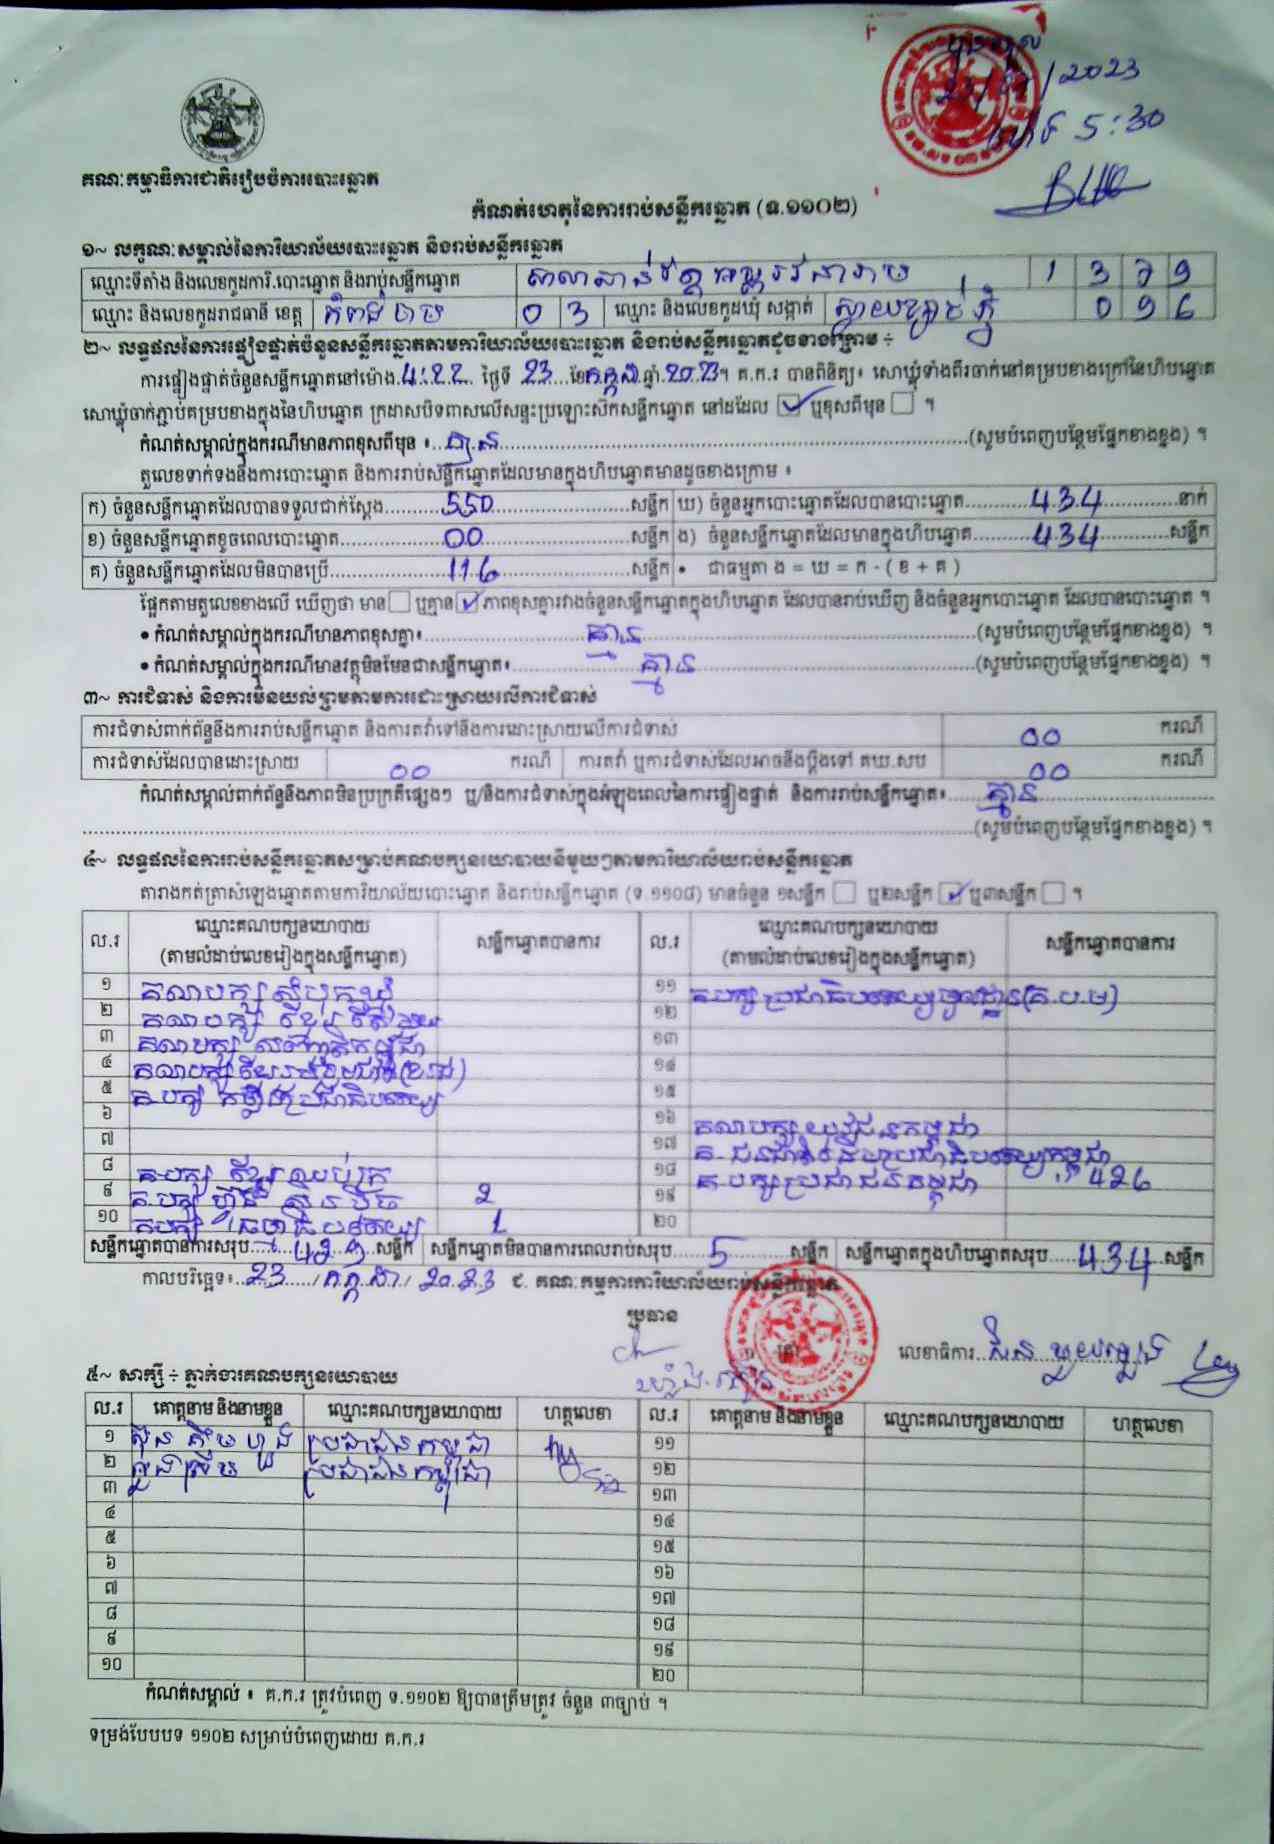 23/07/2023
ម៉ោង 5:30
គណៈកម្មាធិការជាតិរៀបចំការបោះឆ្នោត
កំណត់ហេតុនៃការរាប់សន្លឹកឆ្នោត (ទ.១១០២)
១~ លក្ខណៈសម្គាល់នៃការិយាល័យបោះឆ្នោត និងរាប់សន្លឹកឆ្នោត
ឈ្មោះទីតាំង និងលេខកូដការិ.បោះឆ្នោត និងរាប់សន្លឹកឆ្នោត សាលាឆាន់វត្ត 1 3 7 9
ឈ្មោះ និងលេខកូដរាជធានី ខេត្ត កំពង់ចាម 0 3 ឈ្មោះ និងលេខកូដឃុំ សង្កាត់ ស្វាយខ្សាច់ភ្នំ 0 9 6
២~ លទ្ធផលនៃការផ្ទៀងផ្ទាត់ចំនួនសន្លឹកឆ្នោតតាមការិយាល័យបោះឆ្នោត និងរាប់សន្លឹកឆ្នោតដូចខាងក្រោម ÷
ការផ្ទៀងផ្ទាត់ចំនួនសន្លឹកឆ្នោតនៅម៉ោង 4:22 ថ្ងៃទី 23 ខែកក្កដា ឆ្នាំ 2023 ។ គ.ក.រ បានពិនិត្យ៖ សោឃ្លុំទាំងពីរចាក់នៅគម្របខាងក្រៅនៃហិបឆ្នោត
សោឃ្លុំចាក់ភ្ជាប់គម្របខាងក្នុងនៃហិបឆ្នោត ក្រដាសបិទពាសលើសន្ទះប្រឡោះសិកសន្លឹកឆ្នោត នៅដដែល ☑ ឬខុសពីមុន ☐ ។
កំណត់សម្គាល់ក្នុងករណីមានភាពខុសពីមុន ៖ គ្មាន (សូមបំពេញបន្ថែមផ្នែកខាងខ្នង) ។
តួលេខទាក់ទងនឹងការបោះឆ្នោត និងការរាប់សន្លឹកឆ្នោតដែលមានក្នុងហិបឆ្នោតមានដូចខាងក្រោម ៖
ក) ចំនួនសន្លឹកឆ្នោតដែលបានទទួលជាក់ស្តែង 550 សន្លឹក ឃ) ចំនួនអ្នកបោះឆ្នោតដែលបានបោះឆ្នោត 434 នាក់
ខ) ចំនួនសន្លឹកឆ្នោតខូចពេលបោះឆ្នោត 00 សន្លឹក ង) ចំនួនសន្លឹកឆ្នោតដែលមានក្នុងហិបឆ្នោត 434 សន្លឹក
គ) ចំនួនសន្លឹកឆ្នោតដែលមិនបានប្រើ 116 សន្លឹក • ជាធម្មតា ង = ឃ = ក - ( ខ + គ )
ផ្អែកតាមតួលេខខាងលើ ឃើញថា មាន ☐ ឬគ្មាន ☑ ភាពខុសគ្នារវាងចំនួនសន្លឹកឆ្នោតក្នុងហិបឆ្នោត ដែលបានរាប់ឃើញ និងចំនួនអ្នកបោះឆ្នោត ដែលបានបោះឆ្នោត ។
• កំណត់សម្គាល់ក្នុងករណីមានភាពខុសគ្នា៖ គ្មាន (សូមបំពេញបន្ថែមផ្នែកខាងខ្នង) ។
• កំណត់សម្គាល់ក្នុងករណីមានវត្ថុមិនមែនជាសន្លឹកឆ្នោត៖ គ្មាន (សូមបំពេញបន្ថែមផ្នែកខាងខ្នង) ។
៣~ ការជំទាស់ និងការមិនយល់ព្រមតាមការដោះស្រាយលើការជំទាស់
ការជំទាស់ពាក់ព័ន្ធនឹងការរាប់សន្លឹកឆ្នោត និងការតវ៉ាទៅនឹងការដោះស្រាយលើការជំទាស់ 00 ករណី
ការជំទាស់ដែលបានដោះស្រាយ 00 ករណី ការតវ៉ា ឬការជំទាស់ដែលអាចនឹងប្តឹងទៅ គឃ.សប 00 ករណី
កំណត់សម្គាល់ពាក់ព័ន្ធនឹងភាពមិនប្រក្រតីផ្សេងៗ ឬ/និងការជំទាស់ក្នុងអំឡុងពេលនៃការផ្ទៀងផ្ទាត់ និងការរាប់សន្លឹកឆ្នោត៖ គ្មាន
(សូមបំពេញបន្ថែមផ្នែកខាងខ្នង) ។
៤~ លទ្ធផលនៃការរាប់សន្លឹកឆ្នោតសម្រាប់គណបក្សនយោបាយនីមួយៗតាមការិយាល័យរាប់សន្លឹកឆ្នោត
តារាងកត់ត្រាសំឡេងឆ្នោតតាមការិយាល័យបោះឆ្នោត និងរាប់សន្លឹកឆ្នោត (ទ.១១០៨) មានចំនួន ១សន្លឹក ☐ ឬ២សន្លឹក ☑ ឬ៣សន្លឹក ☐ ។
ល.រ ឈ្មោះគណបក្សនយោបាយ (តាមលំដាប់លេខរៀងក្នុងសន្លឹកឆ្នោត) សន្លឹកឆ្នោតបានការ ល.រ ឈ្មោះគណបក្សនយោបាយ (តាមលំដាប់លេខរៀងក្នុងសន្លឹកឆ្នោត) សន្លឹកឆ្នោតបានការ
១ គណបក្ស សំបុកឃ្មុំ ១១ គ.បក្សប្រជាធិបតេយ្យមូលដ្ឋាន(គ.ប.ម)
២ គណបក្ស ១២
៣ គណបក្ស សញ្ជាតិកម្ពុជា ១៣
៤ គណបក្ស ១៤
៥ គ.បក្ស កម្លាំងប្រជាធិបតេយ្យ ១៥
៦ ១៦ គណបក្សយុវជនកម្ពុជា
៧ ១៧
៨ គ.បក្ស ខ្មែរឈប់ក្រ ១៨ គ.បក្សប្រជាជនកម្ពុជា 426
៩ គ.បក្ស ហ្វ៊ុនស៊ិនប៉ិច 2 ១៩
១០ គ.បក្ស ធម្មាធិបតេយ្យ 1 ២០
សន្លឹកឆ្នោតបានការសរុប 429 សន្លឹក សន្លឹកឆ្នោតមិនបានការពេលរាប់សរុប 5 សន្លឹក សន្លឹកឆ្នោតក្នុងហិបឆ្នោតសរុប 434 សន្លឹក
កាលបរិច្ឆេទ៖ 23 / កក្កដា / 2023 ជ. គណៈកម្មការការិយាល័យរាប់សន្លឹកឆ្នោត
ប្រធាន
លេខាធិការ
៥~ សាក្សី ÷ ភ្នាក់ងារគណបក្សនយោបាយ
ល.រ គោត្តនាម និងនាមខ្លួន ឈ្មោះគណបក្សនយោបាយ ហត្ថលេខា ល.រ គោត្តនាម និងនាមខ្លួន ឈ្មោះគណបក្សនយោបាយ ហត្ថលេខា
១ ប្រជាជនកម្ពុជា ១១
២ ប្រជាជនកម្ពុជា ១២
៣ ១៣
៤ ១៤
៥ ១៥
៦ ១៦
៧ ១៧
៨ ១៨
៩ ១៩
១០ ២០
កំណត់សម្គាល់ ៖ គ.ក.រ ត្រូវបំពេញ ទ.១១០២ ឱ្យបានត្រឹមត្រូវ ចំនួន ៣ច្បាប់ ។
ទម្រង់បែបបទ ១១០២ សម្រាប់បំពេញដោយ គ.ក.រ